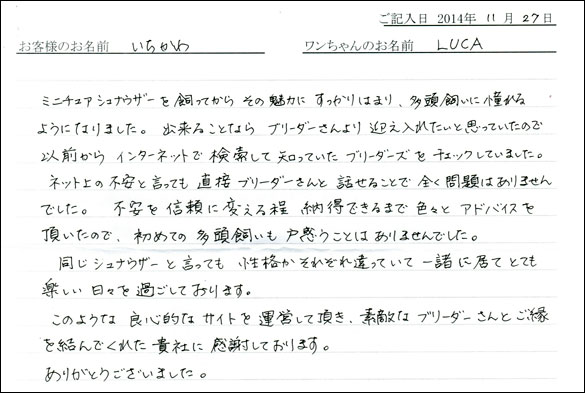 ご記入日 2014年 11月 27日
お客様のお名前 いちかわ ワンちゃんのお名前 LUCA
ミニチュアシュナウザーを飼ってから その魅力に すっかりはまり、多頭飼いに憧れる
ようになりました。 出来ることなら ブリーダーさんより 迎え入れたいと思っていたので
以前から インターネットで 検索して 知っていた ブリーダーズ を チェックしていました。
ネット上の不安と言っても 直接ブリーダーさんと 話せることで 全く問題はありません
でした。 不安を 信頼に 変える程 納得できるまで 色々と アドバイスを
頂いたので、初めての 多頭飼いも 戸惑うことは ありませんでした。
同じ シュナウザー と 言っても 性格が それぞれ 違っていて 一諸に居て とても
楽しい 日々を 過ごしております。
このような 良心的な サイトを 運営して頂き、素敵な ブリーダーさんと ご縁
を 結んでくれた 貴社に 感謝しております。
ありがとうございました。